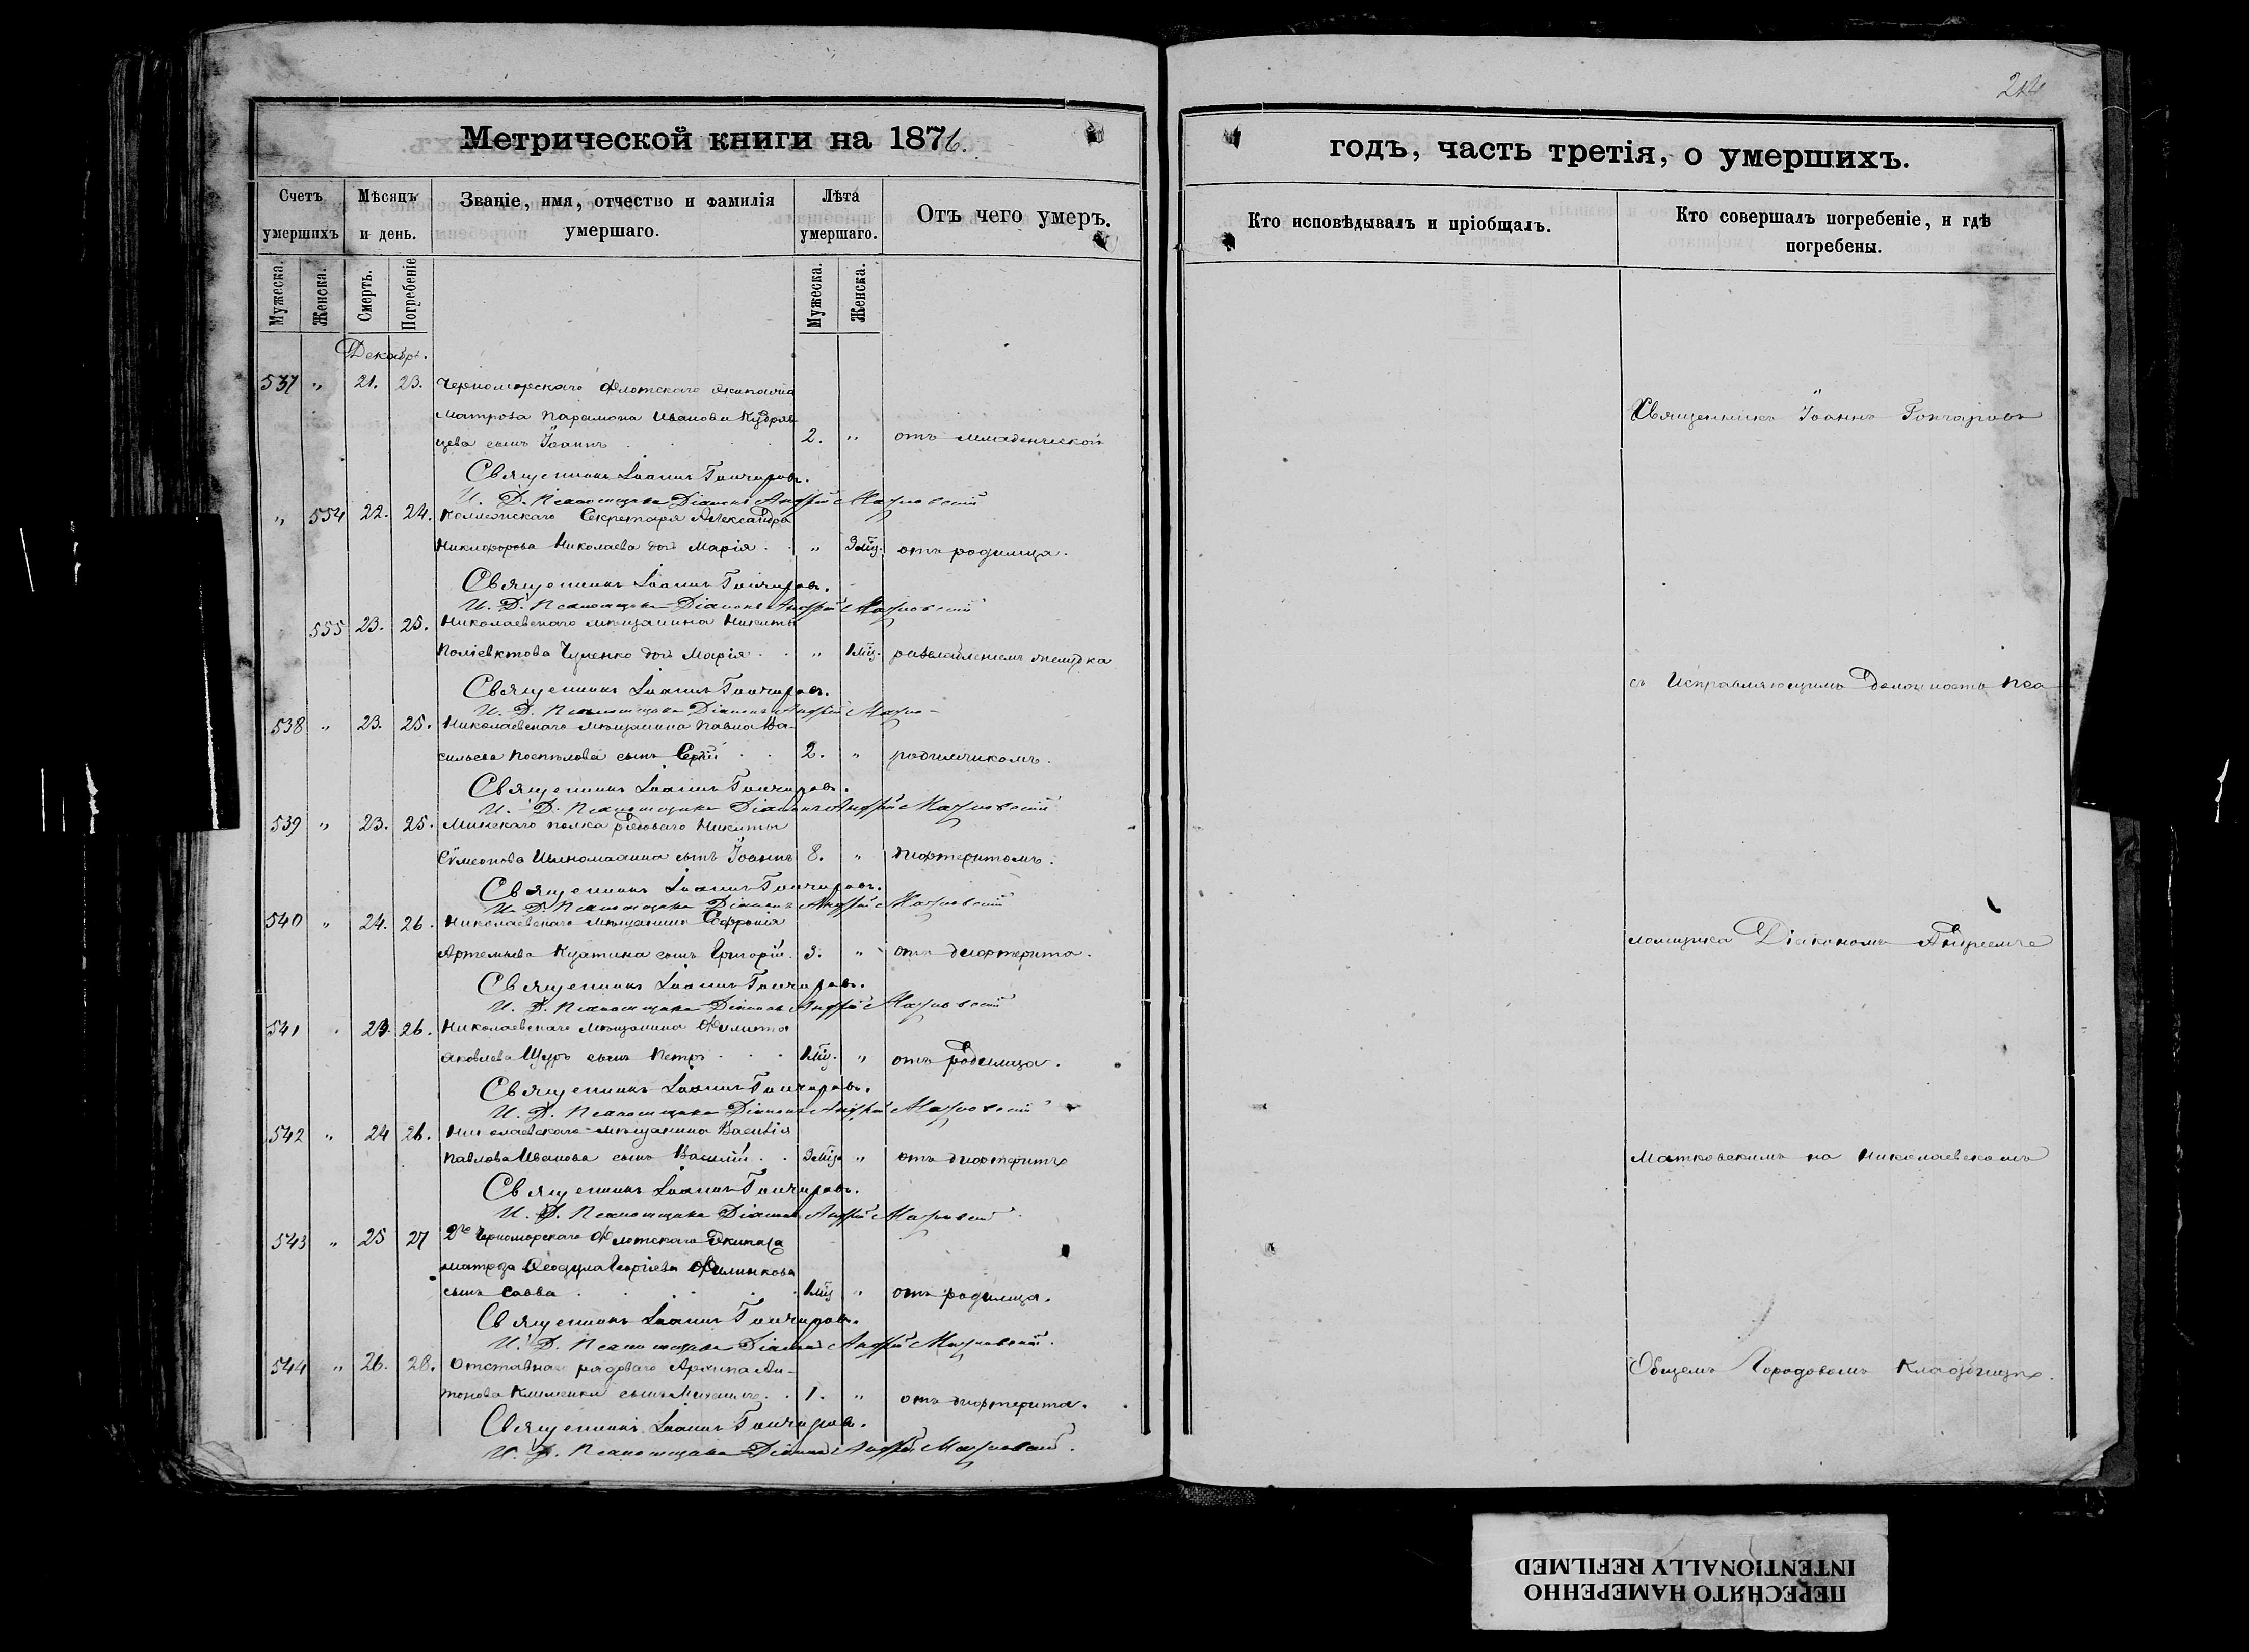 214
Метрической книги на 1876.
годъ, часть третія, о умершихъ.
Счетъ умершихъ
Мѣсяцъ и день.
Званіе, имя, отчество и фамилія умершаго.
Лѣта умершаго.
Отъ чего умеръ.
Кто исповѣдывалъ и пріобщалъ.
Кто совершалъ погребеніе, и гдѣ погребены.
Мужеска. Женска. Смерть. Погребеніе Мужеска. Женска.
Декабрь.
537 " 21. 23. Черноморскаго Флотскаго Экипажа
Матроза Парамона Иванова Кудряв
цева сынъ Іоаннъ 2. " отъ младенческой
Священникъ Іоаннъ Гончаровъ.
И. Д. Псаломщика Діаконъ Андрей Матковскій
" 554 22. 24. Коллежскаго Секретаря Александра
Никифорова Николаева дочь Марія " 3 мѣц. отъ родимца.
Священникъ Іоаннъ Гончаровъ.
И. Д. Псаломщика Діаконъ Андрей Матковскій
555 23. 25. Николаевскаго мѣщанина Никиты
Поліевктова Чуенко дочь Марія " 1 мѣц. разслабленіемъ желудка
Священникъ Іоаннъ Гончаровъ.
И. Д. Псаломщика Діаконъ Андрей Матко-
538 " 23. 25. Николаевскаго мѣщанина Павла Ва-
сильева Поспѣлова сынъ Сергій 2. " родимчикомъ.
Священникъ Іоаннъ Гончаровъ.
И. Д. Псаломщика Діаконъ Андрей Матковскій
539 " 23. 25. Минскаго полка рядоваго Никиты
Сѵмеонова сынъ Іоаннъ 8. " дифтеритомъ.
Священникъ Іоаннъ Гончаровъ.
И. Д. Псаломщика Діаконъ Андрей Матковскій
540 " 24. 26. Николаевскаго мѣщанина Софронія
Артемьева сынъ Григорій 3. " отъ дифтерита.
Священникъ Іоаннъ Гончаровъ.
И. Д. Псаломщика Діаконъ Андрей Матковскій
541 24. 26. Николаевскаго мѣщанина Филипа
Яковлева Щуръ сынъ Петръ 1 мѣц. " отъ родимца.
Священникъ Іоаннъ Гончаровъ.
И. Д. Псаломщика Діаконъ Андрей Матковскій
542 " 24 26. Николаевскаго мѣщанина Василія
Павлова Иванова сынъ Василій 3 мѣц. " отъ дифтерита
Священникъ Іоаннъ Гончаровъ.
И. Д. Псаломщика Діаконъ Андрей Матковскій
543 " 25 27 2го Черноморскаго Флотскаго Экипажа
матроза Георгіева Филинкова
сынъ Савва 1 мѣц " отъ родимца.
Священникъ Іоаннъ Гончаровъ.
И. Д. Псаломщика Діаконъ Андрей Матковскій.
544 " 26. 28. Отставнаго рядоваго Архипа Ан-
тонова Клименки сынъ Михаилъ 1. " отъ дифтерита.
Священникъ Іоаннъ Гончаровъ.
И. Д. Псаломщика Діаконъ Андрей Матковскій.
Священникъ Іоаннъ Гончаровъ
съ Исправляющимъ Должность Пса
ломщика Діакономъ Андреемъ
Матковскимъ на Николаевскомъ
Общемъ Городовомъ Кладбищѣ.
ПЕРЕСНЯТО НАМЕРЕННО
INTENTIONALLY REFILMED